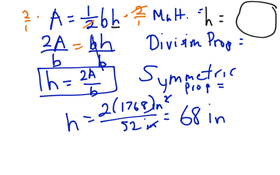 2/1 · A = 1/2 bh · 2/1 Mult. = h =
2A/b = bh/b Division Prop =
h = 2A/b Symmetric prop =
h = 2(1768)in²/52 in = 68 in